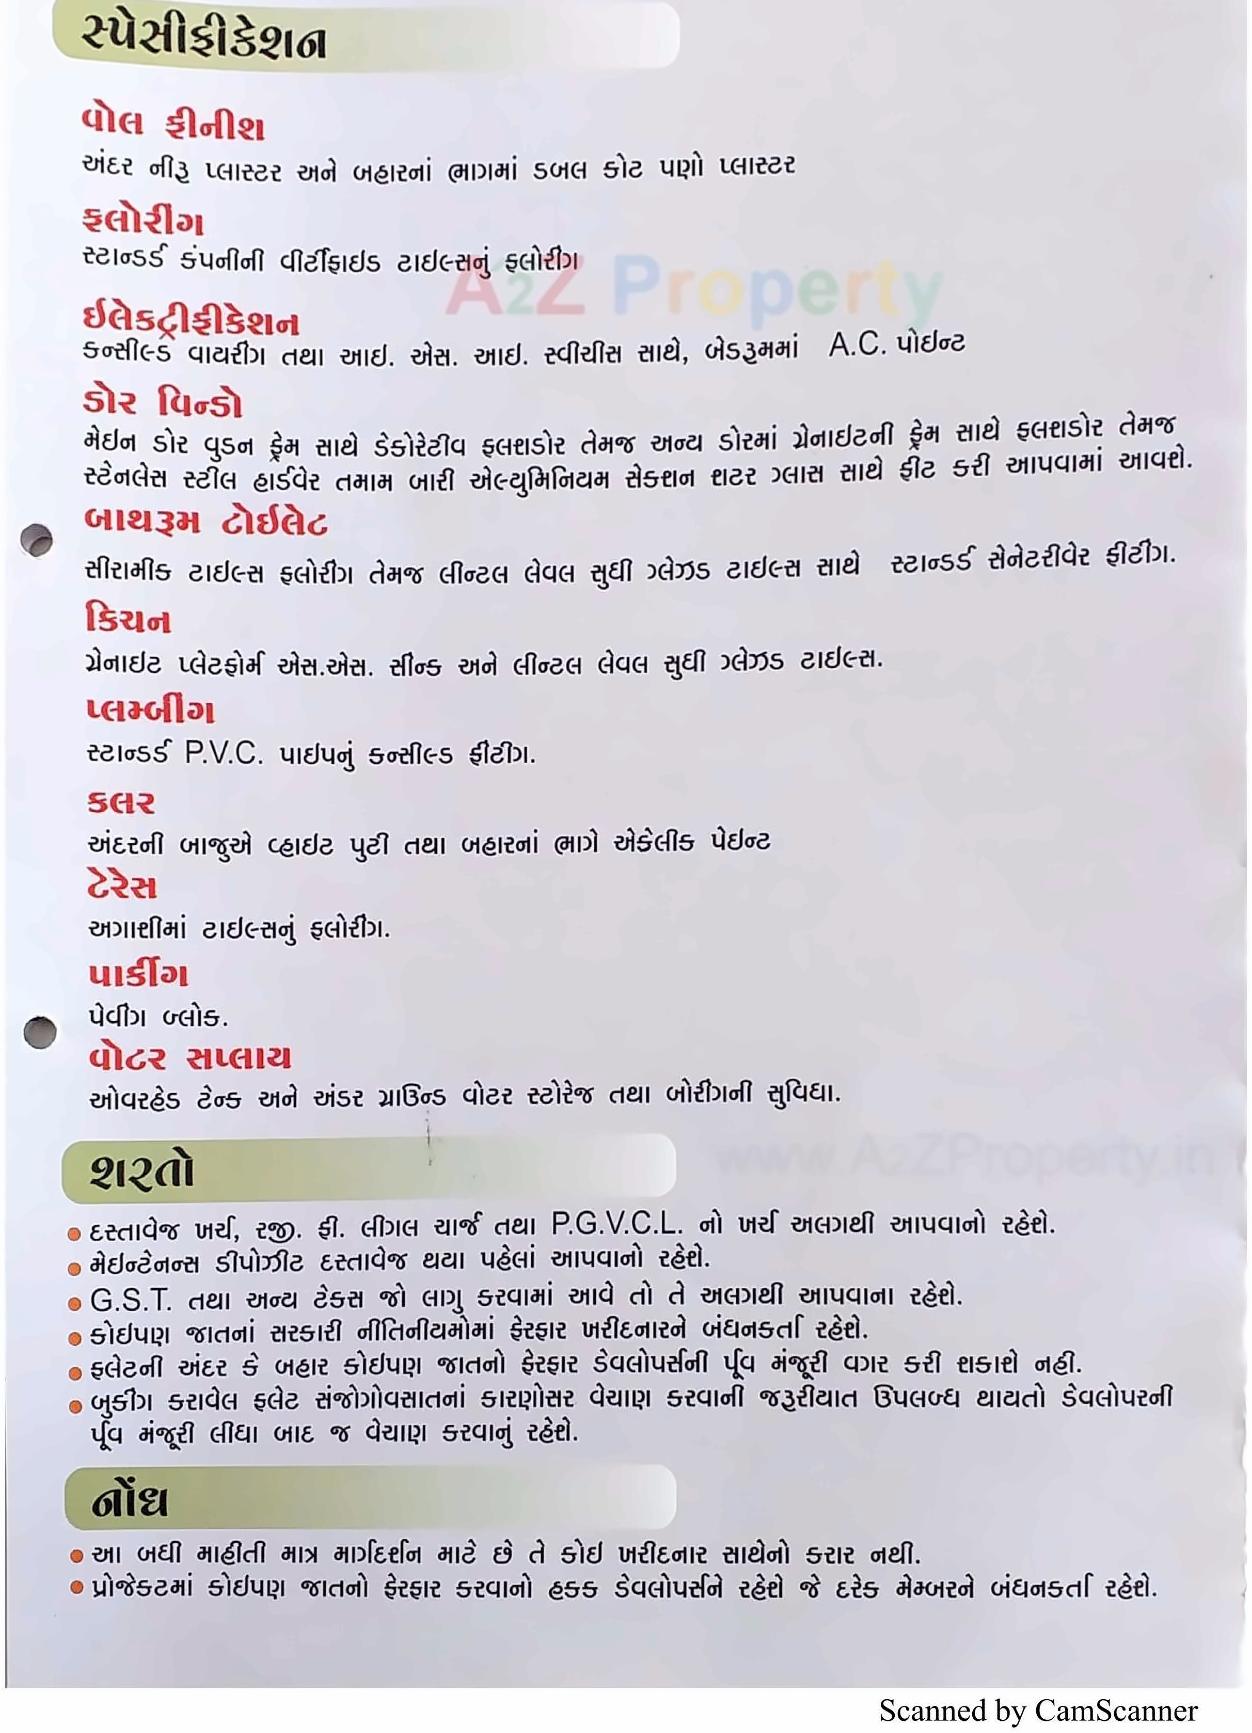 સ્પેસીફીકેશન
વોલ ફીનીશ
અંદર નીરૂ પ્લાસ્ટર અને બહારનાં ભાગમાં ડબલ કોટ પણો પ્લાસ્ટર
ફલોરીંગ
સ્ટાન્ડર્ડ કંપનીની વીર્ટીફાઇડ ટાઇલ્સનું ફલોરીંગ
A2Z Property
ઇલેકટ્રીફીકેશન
કન્સીલ્ડ વાયરીંગ તથા આઇ. એસ. આઇ. સ્વીચીસ સાથે, બેડરૂમમાં A.C. પોઇન્ટ
ડોર વિન્ડો
મેઇન ડોર વુડન ફ્રેમ સાથે ડેકોરેટીવ ફલશડોર તેમજ અન્ય ડોરમાં ગ્રેનાઇટની ફ્રેમ સાથે ફલશડોર તેમજ
સ્ટેનલેસ સ્ટીલ હાર્ડવેર તમામ બારી એલ્યુમિનિયમ સેકશન શટર ગ્લાસ સાથે ફીટ કરી આપવામાં આવશે.
બાથરૂમ ટોઇલેટ
સીરામીક ટાઇલ્સ ફલોરીંગ તેમજ લીન્ટલ લેવલ સુધી ગ્લેઝડ ટાઇલ્સ સાથે સ્ટાન્ડર્ડ સેનેટરીવેર ફીટીંગ.
કિચન
ગ્રેનાઇટ પ્લેટફોર્મ એસ.એસ. સીન્ક અને લીન્ટલ લેવલ સુધી ગ્લેઝડ ટાઇલ્સ.
પ્લમ્બીંગ
સ્ટાન્ડર્ડ P.V.C. પાઇપનું કન્સીલ્ડ ફીટીંગ.
કલર
અંદરની બાજુએ વ્હાઇટ પુટી તથા બહારનાં ભાગે એકેલીક પેઇન્ટ
ટેરેસ
અગાશીમાં ટાઇલ્સનું ફલોરીંગ.
પાર્કીંગ
પેવીંગ બ્લોક.
વોટર સપ્લાય
ઓવરહેડ ટેન્ક અને અંડર ગ્રાઉન્ડ વોટર સ્ટોરેજ તથા બોરીંગની સુવિધા.
www.A2ZProperty.in
શરતો
દસ્તાવેજ ખર્ચ, રજી. ફી. લીગલ ચાર્જ તથા P.G.V.C.L. નો ખર્ચ અલગથી આપવાનો રહેશે.
મેઇન્ટેનન્સ ડીપોઝીટ દસ્તાવેજ થયા પહેલાં આપવાનો રહેશે.
G.S.T. તથા અન્ય ટેક્સ જો લાગુ કરવામાં આવે તો તે અલગથી આપવાના રહેશે.
કોઇપણ જાતનાં સરકારી નીતિનીયમોમાં ફેરફાર ખરીદનારને બંધનકર્તા રહેશે.
ફલેટની અંદર કે બહાર કોઇપણ જાતનો ફેરફાર ડેવલોપર્સની ર્પૂવ મંજૂરી વગર કરી શકાશે નહી.
બુકીંગ કરાવેલ ફલેટ સંજોગોવસાતનાં કારણોસર વેચાણ કરવાની જરૂરીયાત ઉપલબ્ધ થાયતો ડેવલોપરની
ર્પૂવ મંજૂરી લીધા બાદ જ વેચાણ કરવાનું રહેશે.
નોંધ
આ બધી માહીતી માત્ર માર્ગદર્શન માટે છે તે કોઇ ખરીદનાર સાથેનો કરાર નથી.
પ્રોજેકટમાં કોઇપણ જાતનો ફેરફાર કરવાનો હકક ડેવલોપર્સને રહેશે જે દરેક મેમ્બરને બંધનકર્તા રહેશે.
Scanned by CamScanner